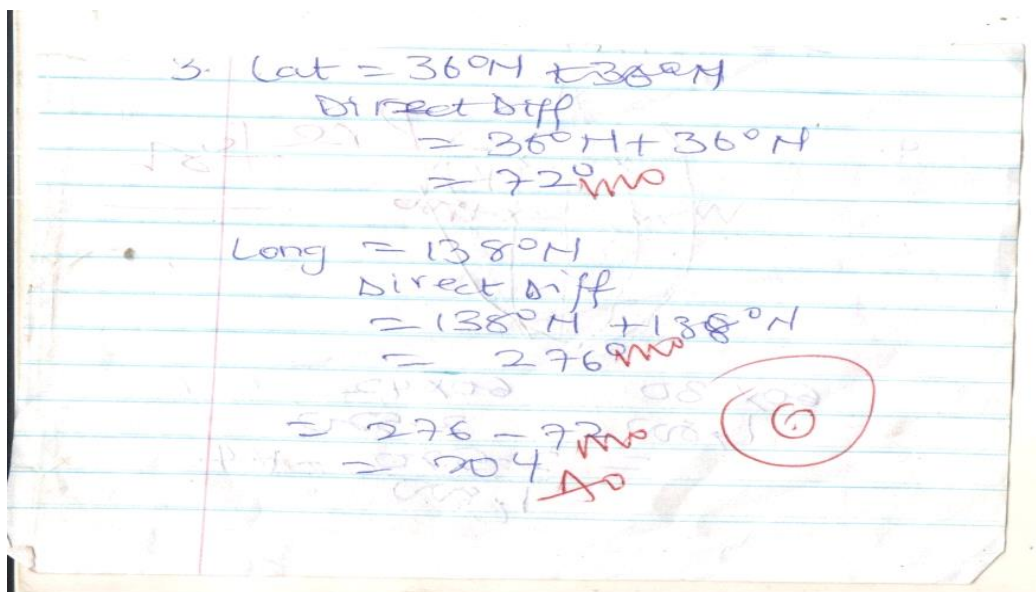 3. Lat = 36°N + 36°N
Direct Diff
= 36°N + 36°N
= 72° M0
Long = 138°N
Direct Diff
= 138°N + 138°N
= 276° M0
= 276 - 72 M0
= 204 A0
0